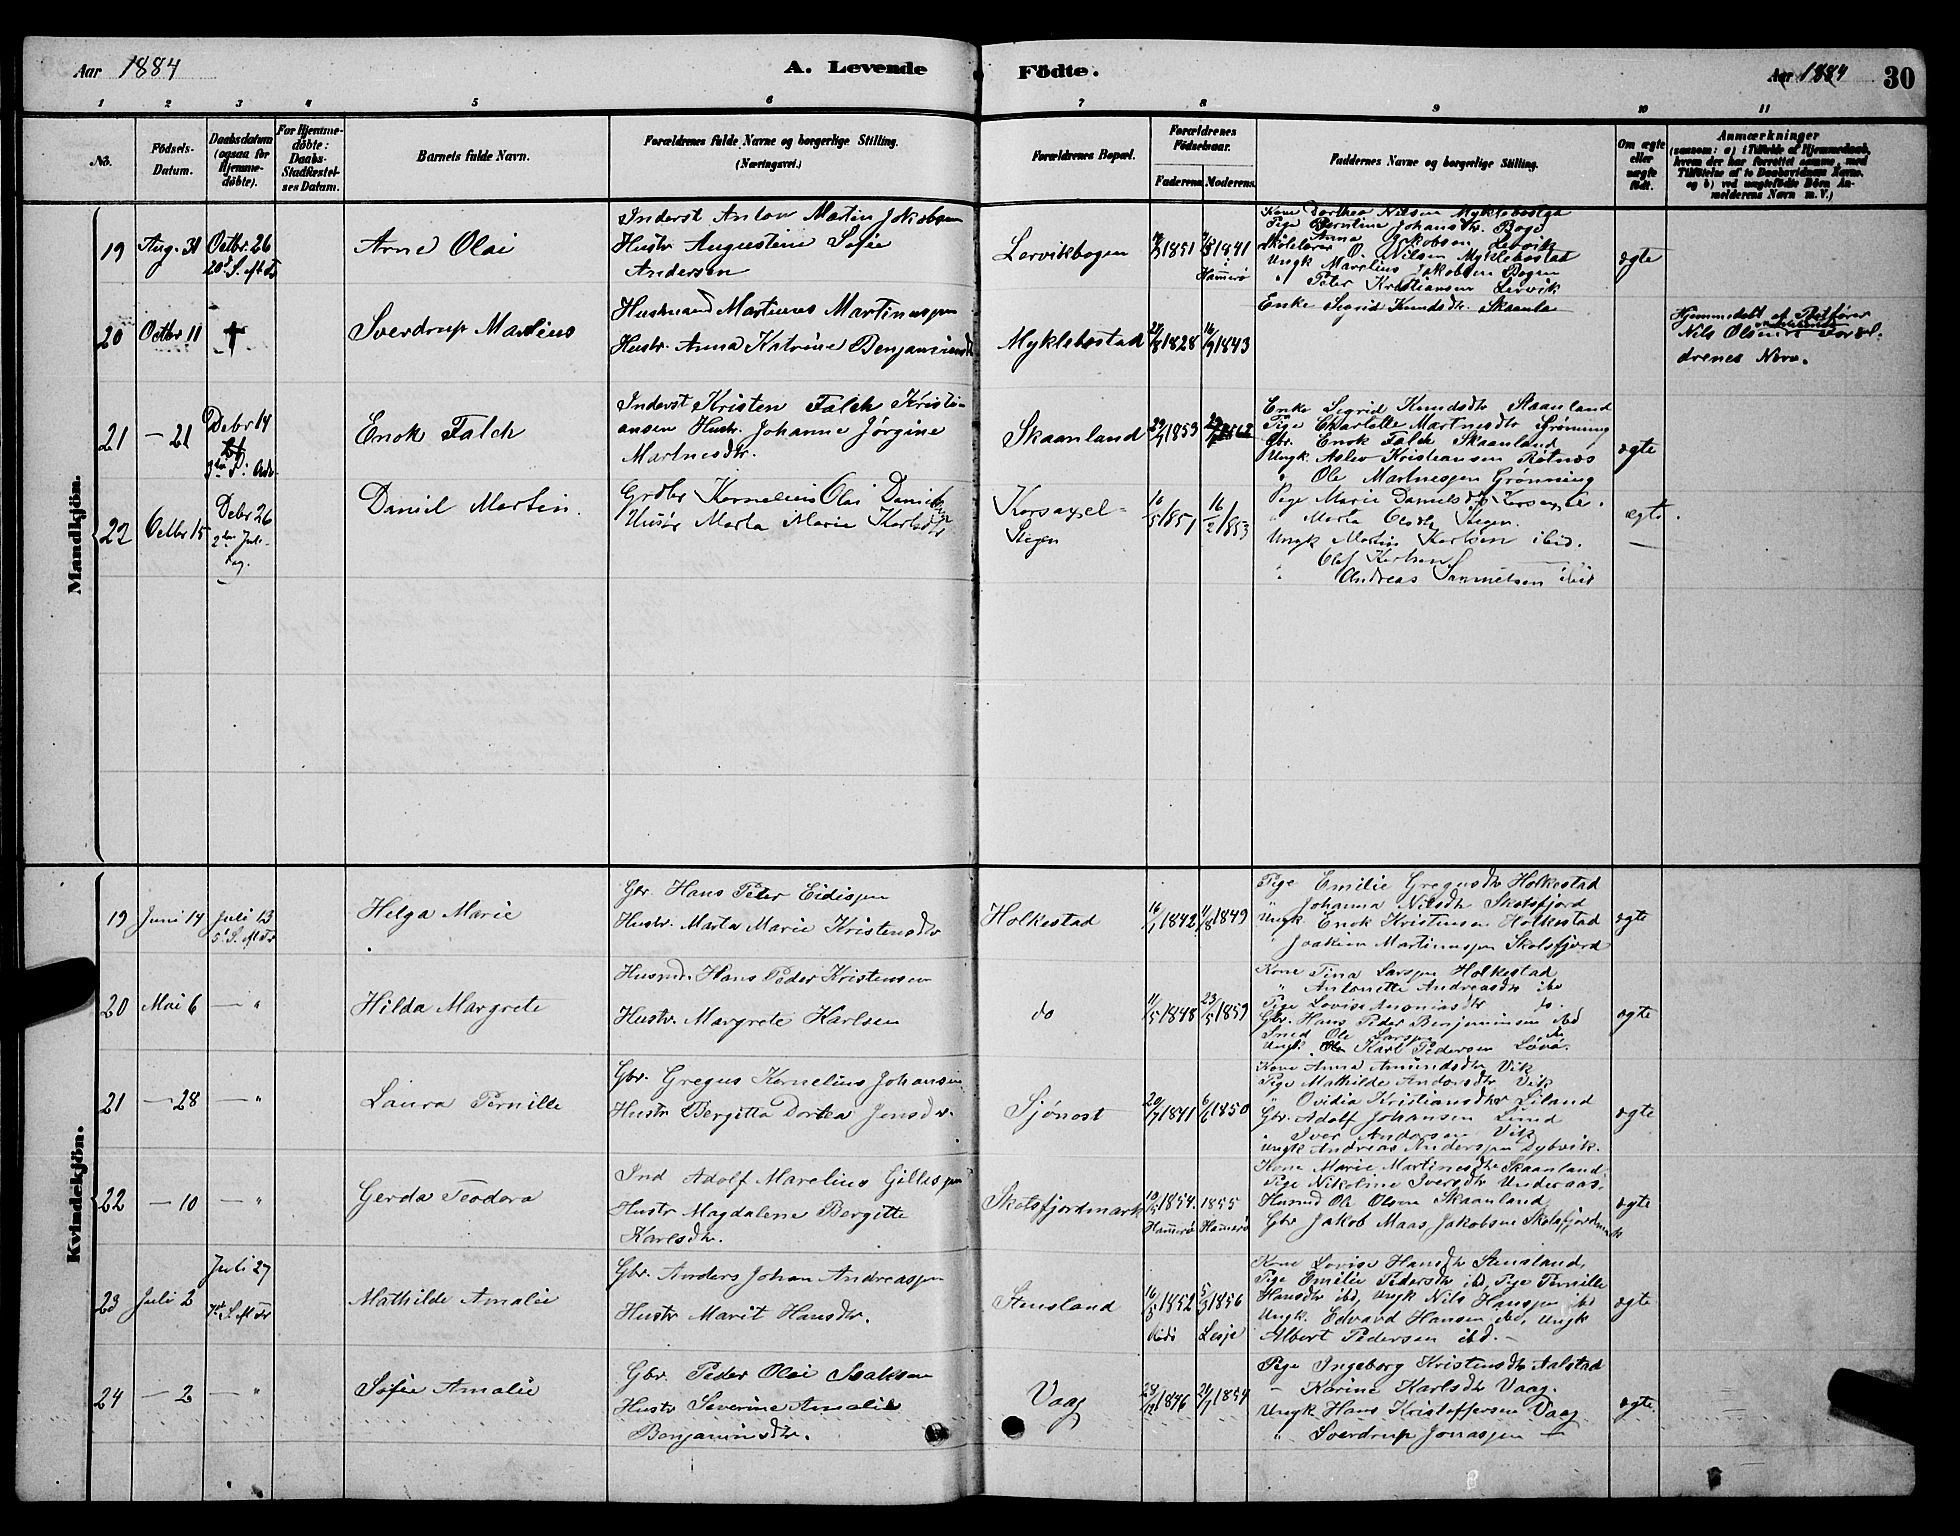 Aar 1884
A. Levende
Födte.
Aar 1884
30
1 2 3 4 5 6 7 8 9 10 11
No.
Födsels-
Datum.
Daabsdatum
(ogsaa for
Hjemme-
döbte).
For Hjemme-
döbte:
Daabs-
Stadfæstel-
ses Datum.
Barnets fulde Navn.
Forældrenes fulde Navne og borgerlige Stilling.
(Næringsvei.)
Forældrenes Bopæl.
Forældrenes
Födselsaar.
Faderens. Moderens.
Faddernes Navne og borgerlige Stilling.
Om ægte
eller
uægte
födt.
Anmærkninger
(saasom: a) i Tilfælde af Hjemmedaab,
hvem der har forrettet samme, med
Tilföielse af to Daabsvidners Navne,
og b) ved uægtefödte Börn An-
melderens Navn m. V.)
Mandkjön.
19
Aug. 31
Octbr. 26
20d S. eft Tr
Arne Olai
Inderst Anton Martin Jakobsen
Hustr Augustine Sofie
Andersen
Lervikbogen
1851
1841
Hamerø
Kone Dorthea Nilsen Myklebostad
Pige Berntine Johansdtr. Boge
Anna Jakobsen Lervik
O. Nilsen Myklebostad
Ungk Marelius Jakobsen Bogen
" Peter Kristiansen Lervik
ægte
20
Octbr 11
†
Sverdrup Marlius
Husmand Martinus Martinussen
Hustr. Anna Katrine Benjaminsdtr
Myklebostad
27/8 1828
16/9 1843
Enke Sigrid Knudsdtr Skaanla
Hjemmedøbt af
Nils Olsen
drenes Nærv.
21
— 21
Debr 14
3die S. i Adv.
Enok Falch
Inderst Kristen Falch Kristi-
ansen Hustr. Johanne Jørgine
Martnesdtr.
Skaanland
1853
Enke Sigrid Knudsdtr Skaanland
Pige Charlotte Martnesdtr Grønning
Gbr. Enok Falch Skaanland
Ungk. Aslev Kristiansen Røtnes
" Ole Martnessen Grønning
ægte
22
Octbr 15
Debr 26
2den Jule-
dag.
Daniel Martin.
Grdbr Kornelius Olai
Hustr Marta Marie
Korsaxel-
Stegen
16/5 1851
16/2 1853
Pige Marie Danielsdtr
" Marta Olsdtr Stegen.
Ungk Martin Karlsen ibid.
Olaf Karlsen
" Andreas Samuelsen ibid
ægte
—
Kvindekjön.
19
Juni 14
Juli 13
5t S. eft Tr
Helga Marie
Gbr. Hans Peter Eidissen
Hustr. Marta Marie Kristensdtr
Holkestad
16/1 1842.
11/8 1849
Pige Emilie Gregusdtr Holkestad
" Johanna Nilsdtr Skotsfjord
Ungk Enok Kristensen Holkestad
" Joakim Martinussen Skotsfjord
ægte
20
Mai 6
— "
Hilda Margrete
Husmd. Hans Peder Kristensen
Hustr. Margrete Karlsen
do
11/5 1848
23/5 1859
Kone Tina Larssen Holkestad
" Antonette Andreasdtr ibd
Pige Lovise Anoniasdtr do.
Gbr. Hans Peder Benjaminsen ibd
Smed Ole Larssen do
Ungk. Karl Pedersen Løvø.
ægte
21
— 28
— "
Laura Pernille
Gbr. Gregus Kornelius Johansen
Hustr Bergitta Dortea Jensdtr.
Sjønost
20/7 1841
6/6 1850
Kone Anna Amundsdtr Vik
Pige Mathilde Andersdtr Vik
" Ovidia Kristiansdtr Liland
Gbr. Adolf Johansen Lund
" Iver Andersen Vik
Ungk Andreas Anderssen Dybvik.
ægte
22
— 10
— "
Gerda Teodora
Ind Adolf Marelius Gillessen
Hustr Magdalena Bergitte
Karlsdtr.
Skotsfjordmark
10/5 1854.
Hamerø
1855
Hamerø
Kone Marie Martinesdtr Skaanland
Pige Nikoline Iversdtr Underaas.
Husmd Ole Olsen Skaanland
Gbr Jakob Maas Jakobsen Skotsfjordmark
ægte
23
Juli 2
Juli 27
7d S. eft Tr
Mathilde Amalie
Gbr. Anders Johan Andreassen
Hustr Marit Hansdtr.
Stensland
16/5 1852
5/3 1856
Lesje
Kone Lovise Hansdtr Stensland,
Pige Emilie Pedersdtr ibd, Pige Pernille
Hansdtr ibd, Ungk Nils Hanssen ibd
Ungk. Edvard Hansen ibd, Ungk
Albert Pedersen ibd. —
ægte
24
— 2
— "
Sofie Amalie
Gbr. Peder Olai Isaksen
Hustr Severine Amalie
Benjaminsdtr.
Vaag
24/12 1846
21/1 1854
Pige Ingeborg Kristensdtr Aalstad
— Karine Karlsdtr Vaag.
Ungk Hans Kristoffersen Vaag
" Sverdrup Jonassen —
ægte.